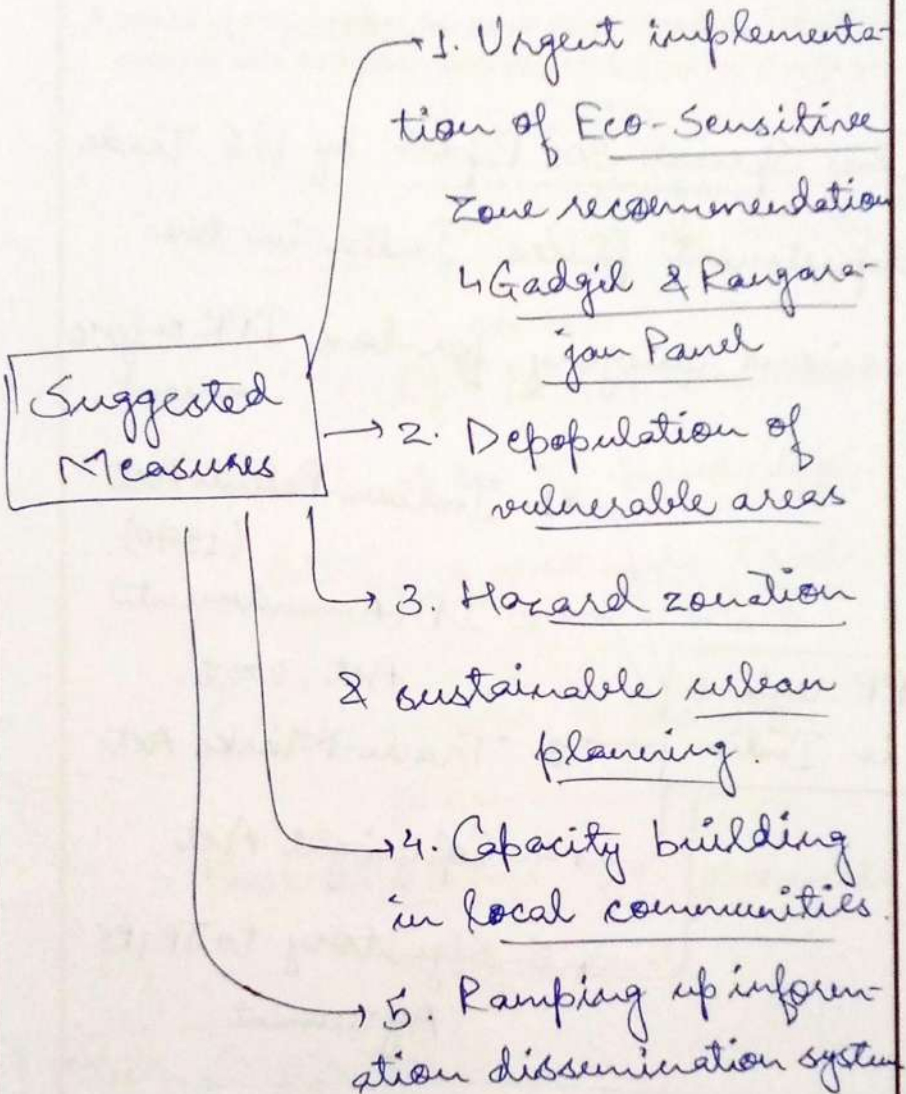 1. Urgent implementa-
tion of Eco-Sensitive
zone recommendation
↳ Gadgil & Rangara-
jan Panel
Suggested
Measures
2. Depopulation of
vulnerable areas
3. Hazard zonation
& sustainable urban
planning.
4. Capacity building
in local communities.
5. Ramping up inform-
ation dissemination system